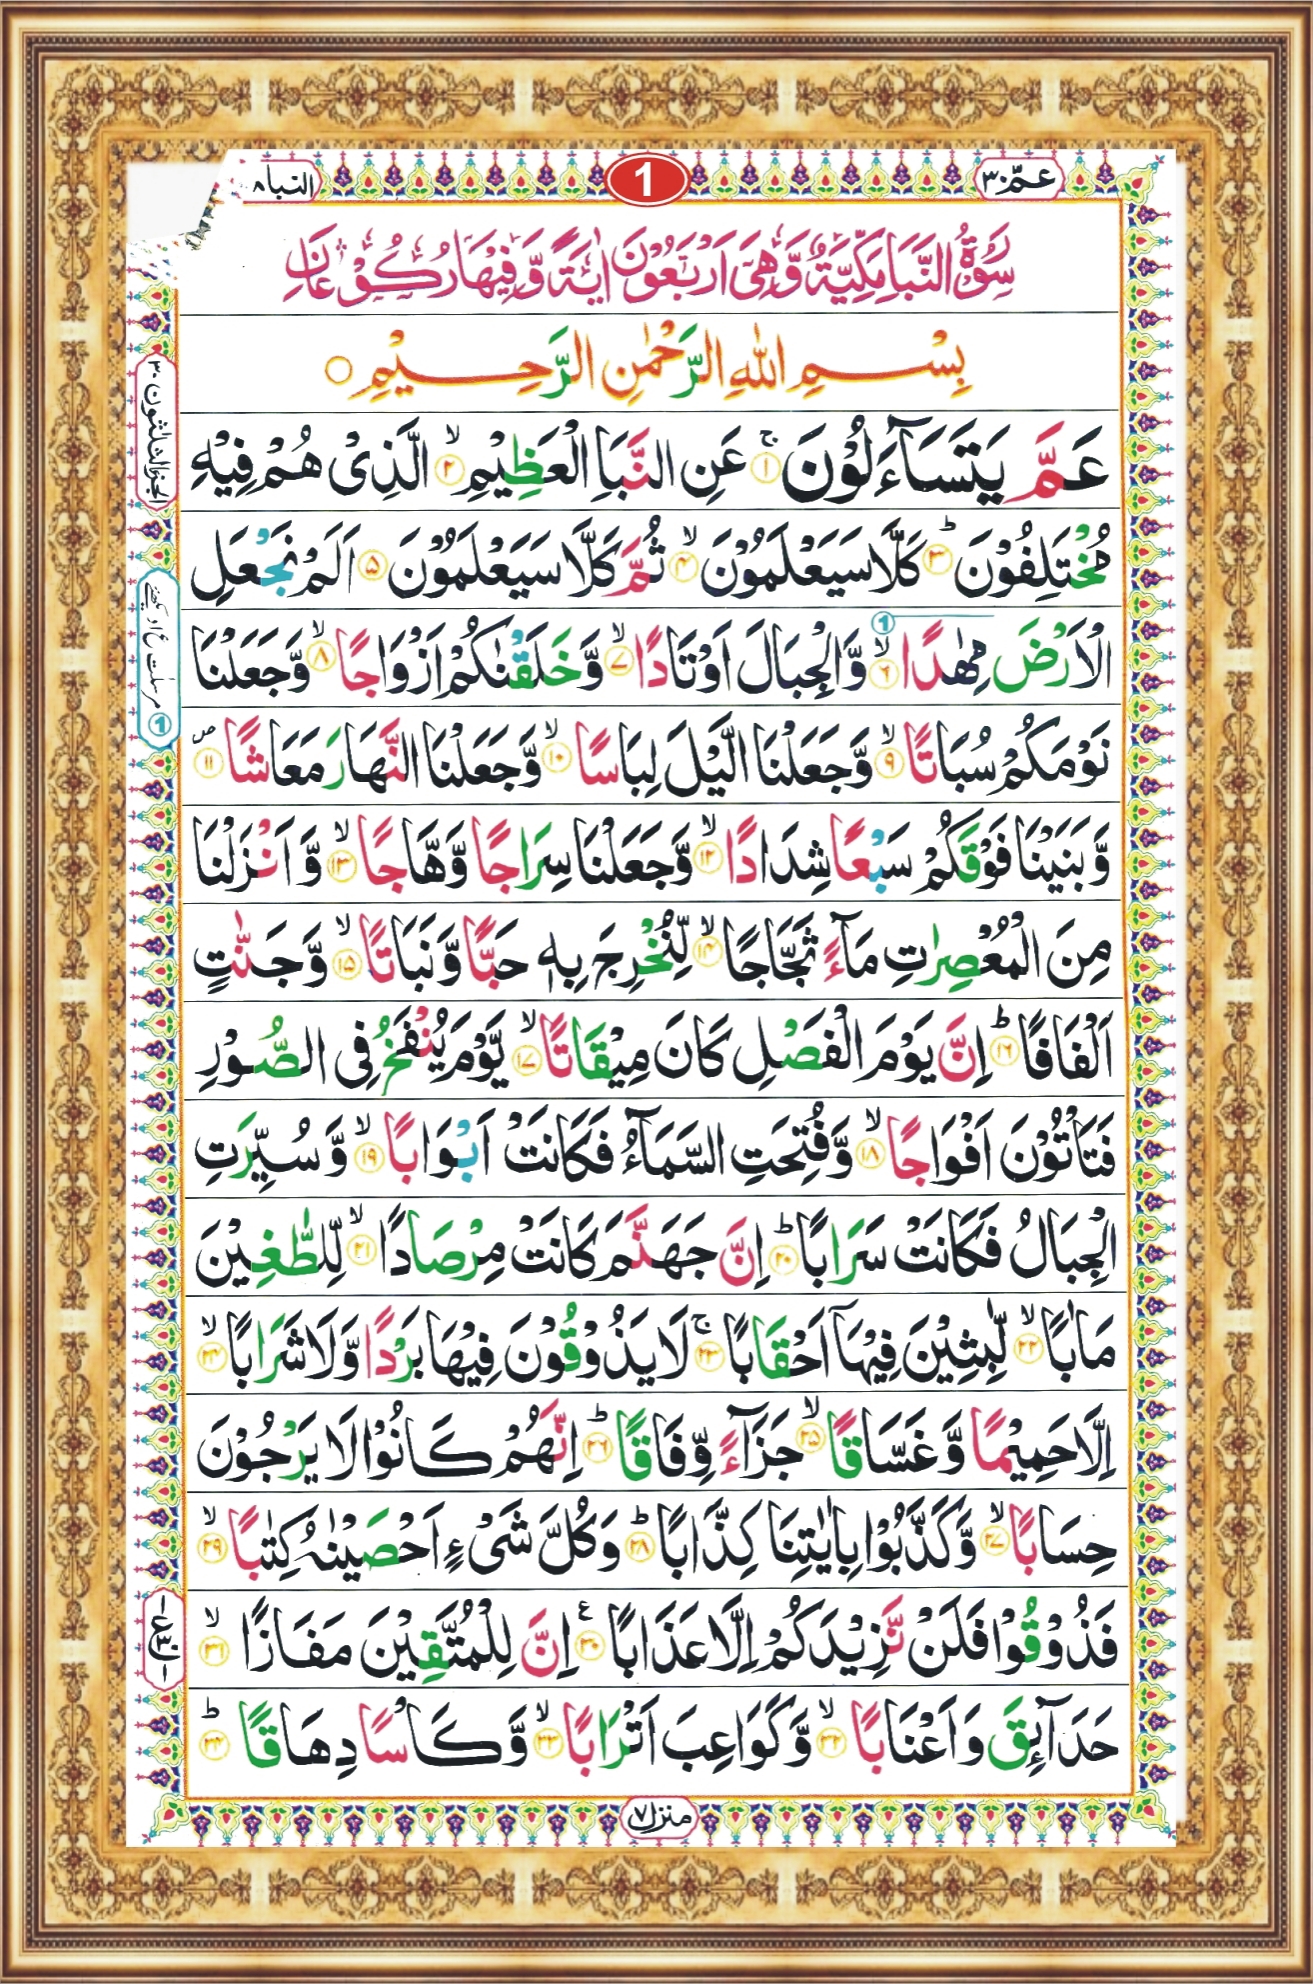 عمّ ٣٠
1
النبا ٧٨
سُوۡرَةُ النَّبَاِ مَكِّيَّةٌ وَّهِىَ اَرۡبَعُوۡنَ اٰيَةً وَّفِيۡهَا رُكُوۡعَانِ
بِسۡمِ اللهِ الرَّحۡمٰنِ الرَّحِيۡمِ ○
عَمَّ يَتَسَآءَلُوۡنَ‌ۚ‏ ١ عَنِ النَّبَاِ الۡعَظِيۡمِۙ‏ ٢ الَّذِىۡ هُمۡ فِيۡهِ
مُخۡتَلِفُوۡنَؕ‏ ٣ كَلَّا سَيَعۡلَمُوۡنَۙ‏ ٤ ثُمَّ كَلَّا سَيَعۡلَمُوۡنَ ٥ اَلَمۡ نَجۡعَلِ
الۡاَرۡضَ مِهٰدًا ۙ‏ ٦ وَّالۡجِبَالَ اَوۡتَادًا ۙ‏ ٧ وَّخَلَقۡنٰكُمۡ اَزۡوَاجًا ۙ‏ ٨ وَّجَعَلۡنَا
نَوۡمَكُمۡ سُبَاتًا ۙ‏ ٩ وَّجَعَلۡنَا الَّيۡلَ لِبَاسًا ۙ‏ ١٠ وَّجَعَلۡنَا النَّهَارَ مَعَاشًا ١١
وَّبَنَيۡنَا فَوۡقَكُمۡ سَبۡعًا شِدَادًا ۙ‏ ١٢ وَّجَعَلۡنَا سِرَاجًا وَّهَّاجًا ۙ‏ ١٣ وَّاَنۡزَلۡنَا
مِنَ الۡمُعۡصِرٰتِ مَآءً ثَجَّاجًا ۙ‏ ١٤ لِّنُخۡرِجَ بِهٖ حَبًّا وَّنَبَاتًا ۙ‏ ١٥ وَّجَنّٰتٍ
اَلۡفَافًا ؕ‏ ١٦ اِنَّ يَوۡمَ الۡفَصۡلِ كَانَ مِيۡقَاتًا ۙ‏ ١٧ يَّوۡمَ يُنۡفَخُ فِى الصُّوۡرِ
فَتَاۡتُوۡنَ اَفۡوَاجًا ۙ‏ ١٨ وَّفُتِحَتِ السَّمَآءُ فَكَانَتۡ اَبۡوَابًا ۙ‏ ١٩ وَّ سُيِّرَتِ
الۡجِبَالُ فَكَانَتۡ سَرَابًا ؕ‏ ٢٠ اِنَّ جَهَنَّمَ كَانَتۡ مِرۡصَادًا ۙ‏ ٢١ لِّلطّٰغِيۡنَ
مَاٰبًا ۙ‏ ٢٢ لّٰبِثِيۡنَ فِيۡهَاۤ اَحۡقَابًا‌ ۚ‏ ٢٣ لَا يَذُوۡقُوۡنَ فِيۡهَا بَرۡدًا وَّلَا شَرَابًا ۙ‏ ٢٤
اِلَّا حَمِيۡمًا وَّغَسَّاقًا ۙ‏ ٢٥ جَزَآءً وِّفَاقًا ؕ‏ ٢٦ اِنَّهُمۡ كَانُوۡا لَا يَرۡجُوۡنَ
حِسَابًا ۙ‏ ٢٧ وَّكَذَّبُوۡا بِاٰيٰتِنَا كِذَّابًا ؕ‏ ٢٨ وَكُلَّ شَىۡءٍ اَحۡصَيۡنٰهُ كِتٰبًا ۙ‏ ٢٩
فَذُوۡقُوۡا فَلَنۡ نَّزِيۡدَكُمۡ اِلَّا عَذَابًا ٣٠ اِنَّ لِلۡمُتَّقِيۡنَ مَفَازًا ۙ‏ ٣١
حَدَآئِقَ وَاَعۡنَابًا ۙ‏ ٣٢ وَّكَوَاعِبَ اَتۡرَابًا ۙ‏ ٣٣ وَّكَاۡسًا دِهَاقًا ؕ‏ ٣٤
منزل ٧